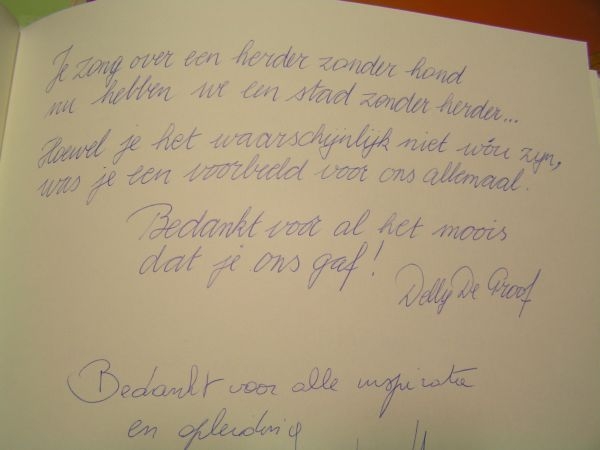 Je zong over een herder zonder hond
nu hebben we een stad zonder herder...
Hoewel je het waarschijnlijk niet wóu zijn,
was je een voorbeeld voor ons allemaal.
Bedankt voor al het moois
dat je ons gaf!
Delly De Proof
Bedankt voor alle inspiratie
en opleiding